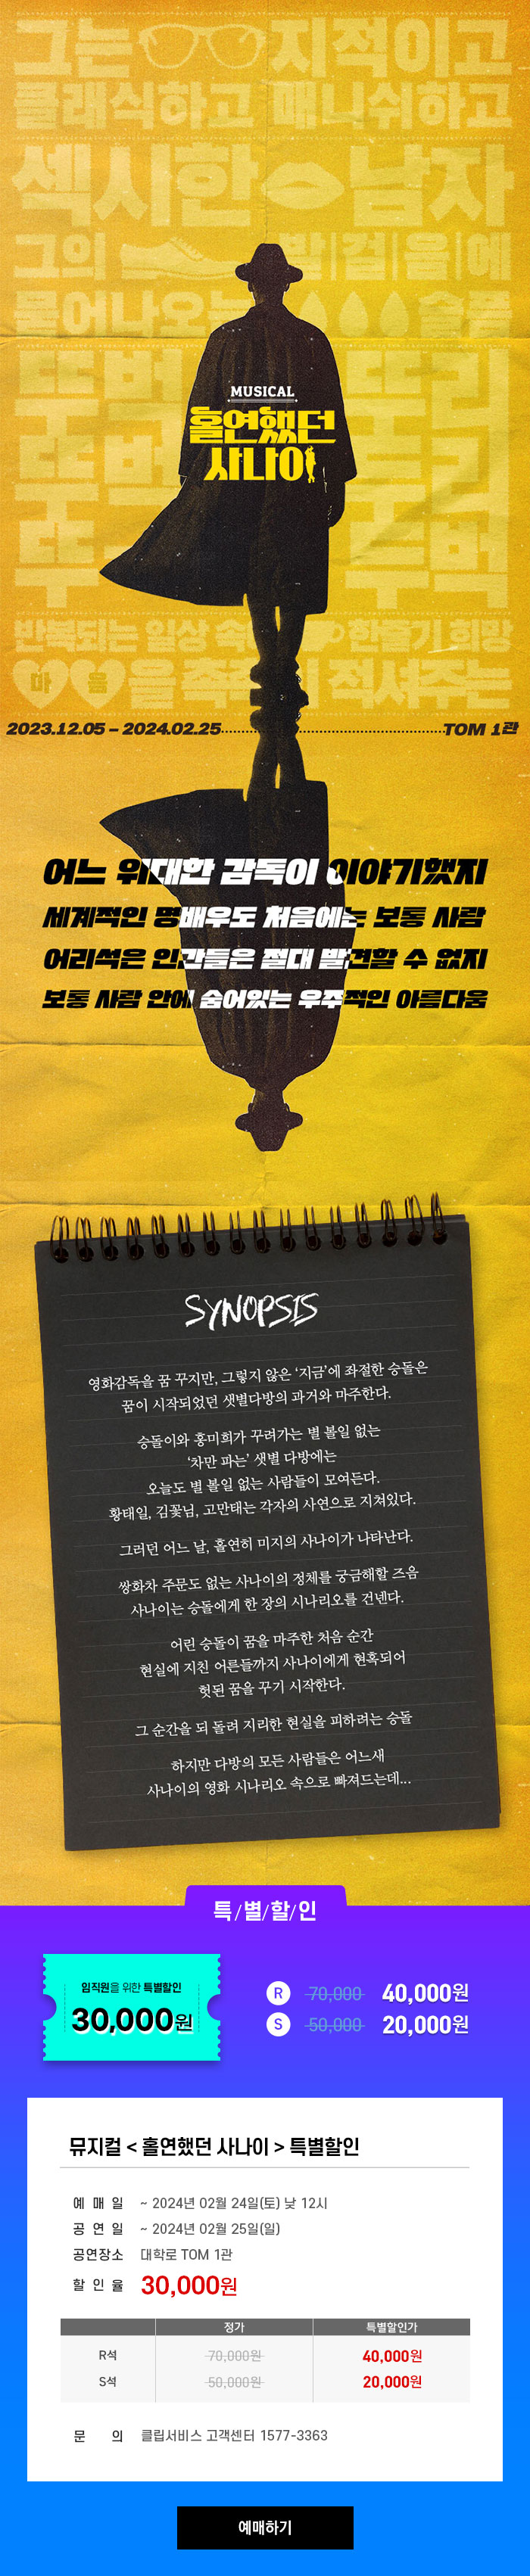 그는 지적이고
클래식하고 매니쉬하고
섹시한 남자
그의 발|걸|음|에
묻어나오는 슬픔
뚜벅 뚜벅
반복되는 일상 속 한줄기 희망
마 음 을 촉촉히 적셔주는
MUSICAL
홀연했던
사나이
2023.12.05 – 2024.02.25
TOM 1관
어느 위대한 감독이 이야기했지
세계적인 명배우도 처음에는 보통 사람
어리석은 인간들은 절대 발견할 수 없지
보통 사람 안에 숨어있는 우주적인 아름다움
SYNOPSIS
영화감독을 꿈 꾸지만, 그렇지 않은 '지금'에 좌절한 승돌은
꿈이 시작되었던 샛별다방의 과거와 마주한다.
승돌이와 홍미희가 꾸려가는 별 볼일 없는
'차만 파는' 샛별 다방에는
오늘도 별 볼일 없는 사람들이 모여든다.
황태일, 김꽃님, 고만태는 각자의 사연으로 지쳐있다.
그러던 어느 날, 홀연히 미지의 사나이가 나타난다.
쌍화차 주문도 없는 사나이의 정체를 궁금해할 즈음
사나이는 승돌에게 한 장의 시나리오를 건넨다.
어린 승돌이 꿈을 마주한 처음 순간
현실에 지친 어른들까지 사나이에게 현혹되어
헛된 꿈을 꾸기 시작한다.
그 순간을 되 돌려 지리한 현실을 피하려는 승돌
하지만 다방의 모든 사람들은 어느새
사나이의 영화 시나리오 속으로 빠져드는데...
특/별/할/인
임직원을 위한 특별할인
30,000원
R 70,000 40,000원
S 50,000 20,000원
뮤지컬 < 홀연했던 사나이 > 특별할인
예 매 일 ~ 2024년 02월 24일(토) 낮 12시
공 연 일 ~ 2024년 02월 25일(일)
공연장소 대학로 TOM 1관
할 인 율 30,000원
정가 특별할인가
R석 70,000원 40,000원
S석 50,000원 20,000원
문 의 클립서비스 고객센터 1577-3363
예매하기